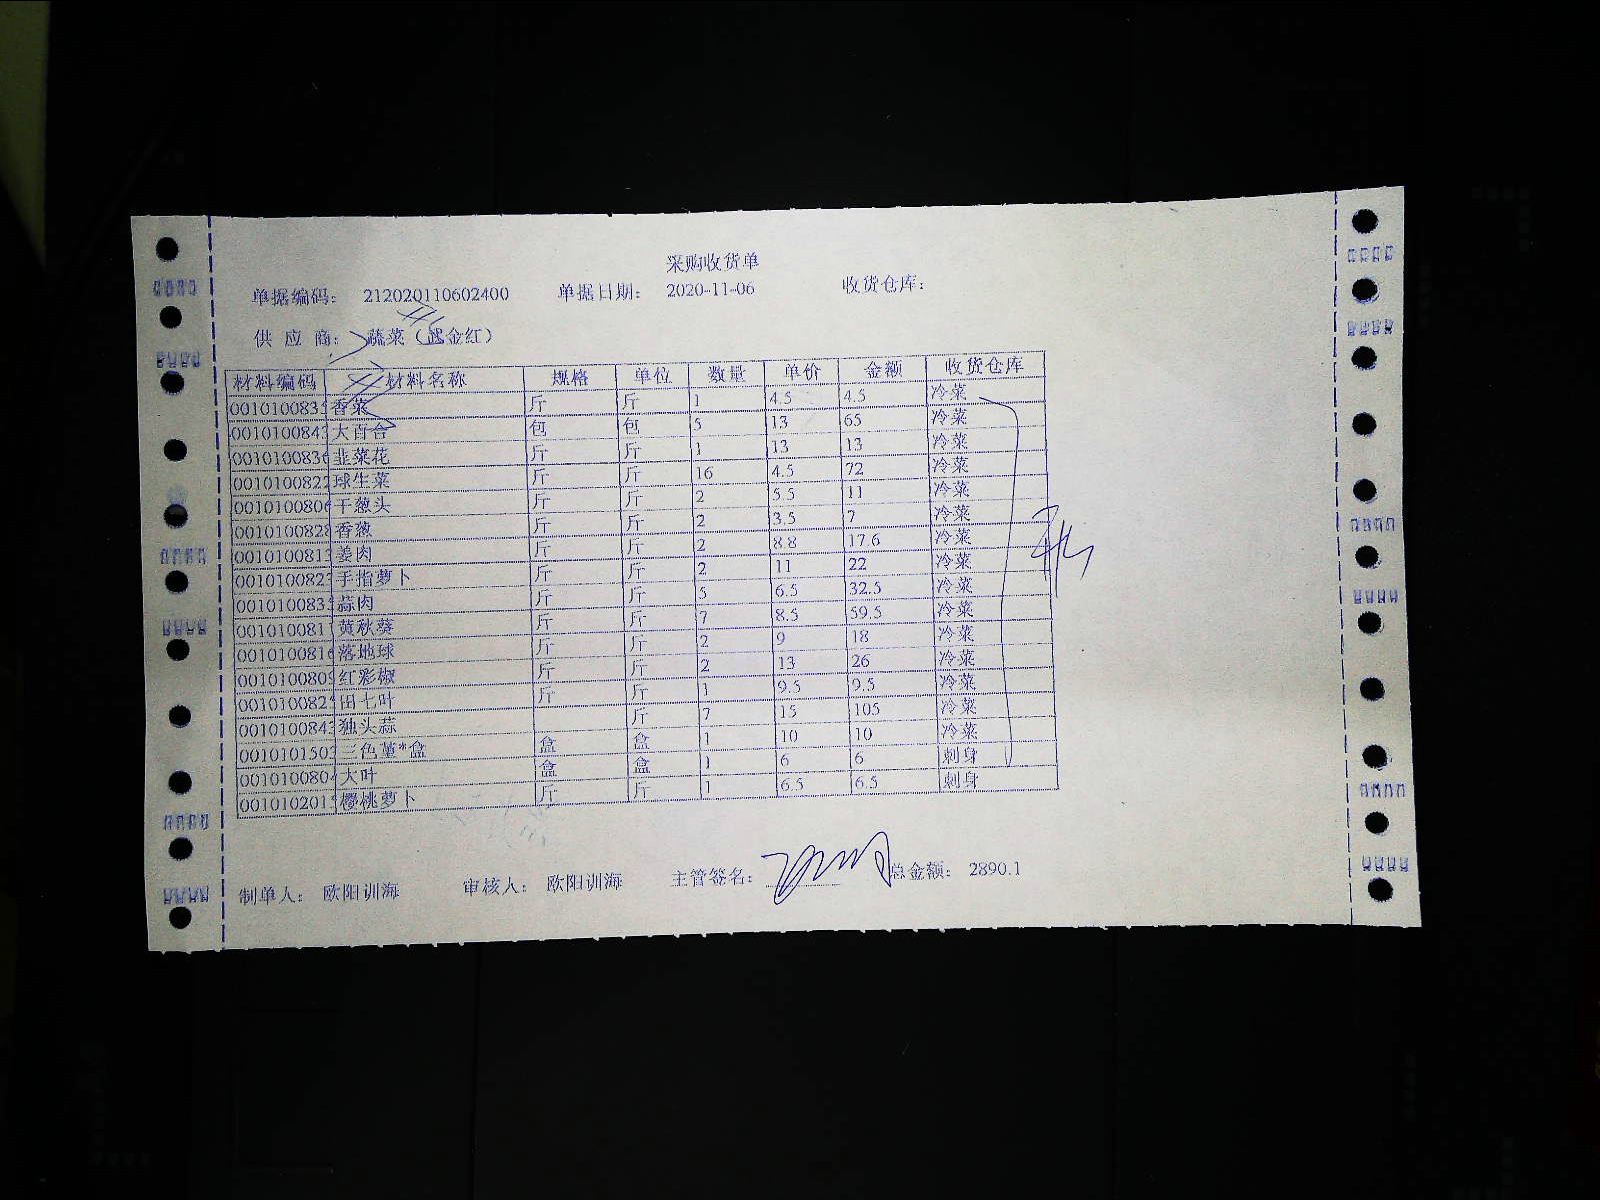 采购收货单
单据编码： 212020110602400 单据日期： 2020-11-06 收货仓库：
供 应 商： 蔬菜（ 金红）
材料编码 材料名称 规格 单位 数量 单价 金额 收货仓库
001010083 香菜 斤 斤 1 4.5 4.5 冷菜
001010084 大百合 包 包 5 13 65 冷菜
001010083 韭菜花 斤 斤 1 13 13 冷菜
001010082 球生菜 斤 斤 16 4.5 72 冷菜
001010080 干葱头 斤 斤 2 5.5 11 冷菜
001010082 香葱 斤 斤 2 3.5 7 冷菜
001010081 姜肉 斤 斤 2 8.8 17.6 冷菜
001010082 手指萝卜 斤 斤 2 11 22 冷菜
001010083 蒜肉 斤 斤 5 6.5 32.5 冷菜
001010081 黄秋葵 斤 斤 7 8.5 59.5 冷菜
001010081 落地球 斤 斤 2 9 18 冷菜
001010080 红彩椒 斤 斤 2 13 26 冷菜
001010082 田七叶 斤 斤 1 9.5 9.5 冷菜
001010084 独头蒜 斤 7 15 105 冷菜
001010150 三色堇*盒 盒 盒 1 10 10 冷菜
001010080 大叶 盒 盒 1 6 6 刺身
001010201 樱桃萝卜 斤 斤 1 6.5 6.5 刺身
制单人： 欧阳训海 审核人： 欧阳训海 主管签名： 总金额： 2890.1